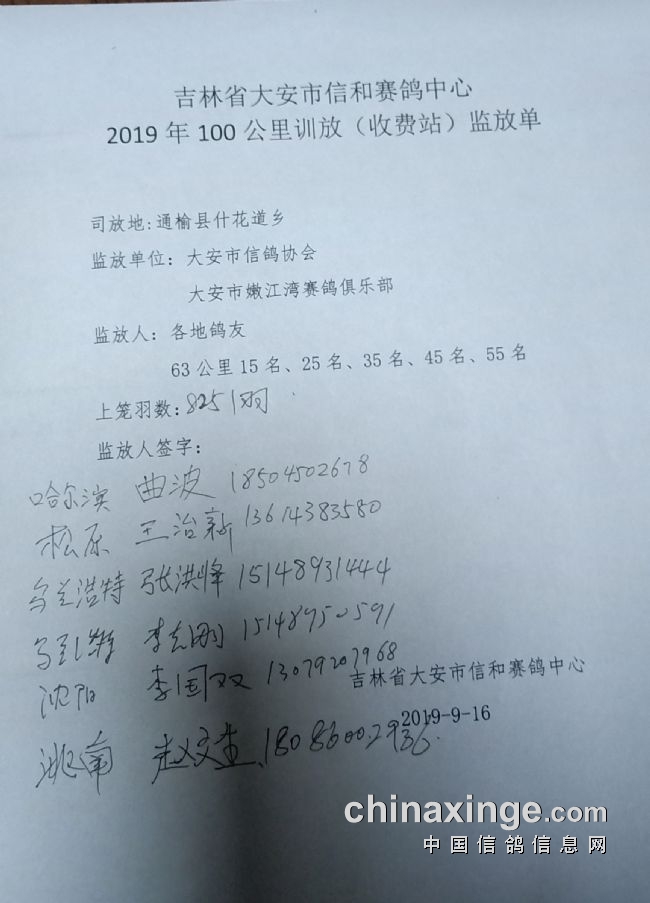 吉林省大安市信和赛鸽中心
2019 年 100 公里训放（收费站）监放单
司放地:通榆县什花道乡
监放单位：大安市信鸽协会
大安市嫩江湾赛鸽俱乐部
监放人：各地鸽友
63 公里 15 名、25 名、35 名、45 名、55 名
上笼羽数：8251羽
监放人签字：
哈尔滨 曲波 18504502678
松原 王治新 13614383580
乌兰浩特 张洪峰 15148931444
李志刚 15148950591
沈阳 李国双 13079207968
吉林省大安市信和赛鸽中心
2019-9-16
洮南 赵文生 18086002936
chinaxinge.com
中国信鸽信息网